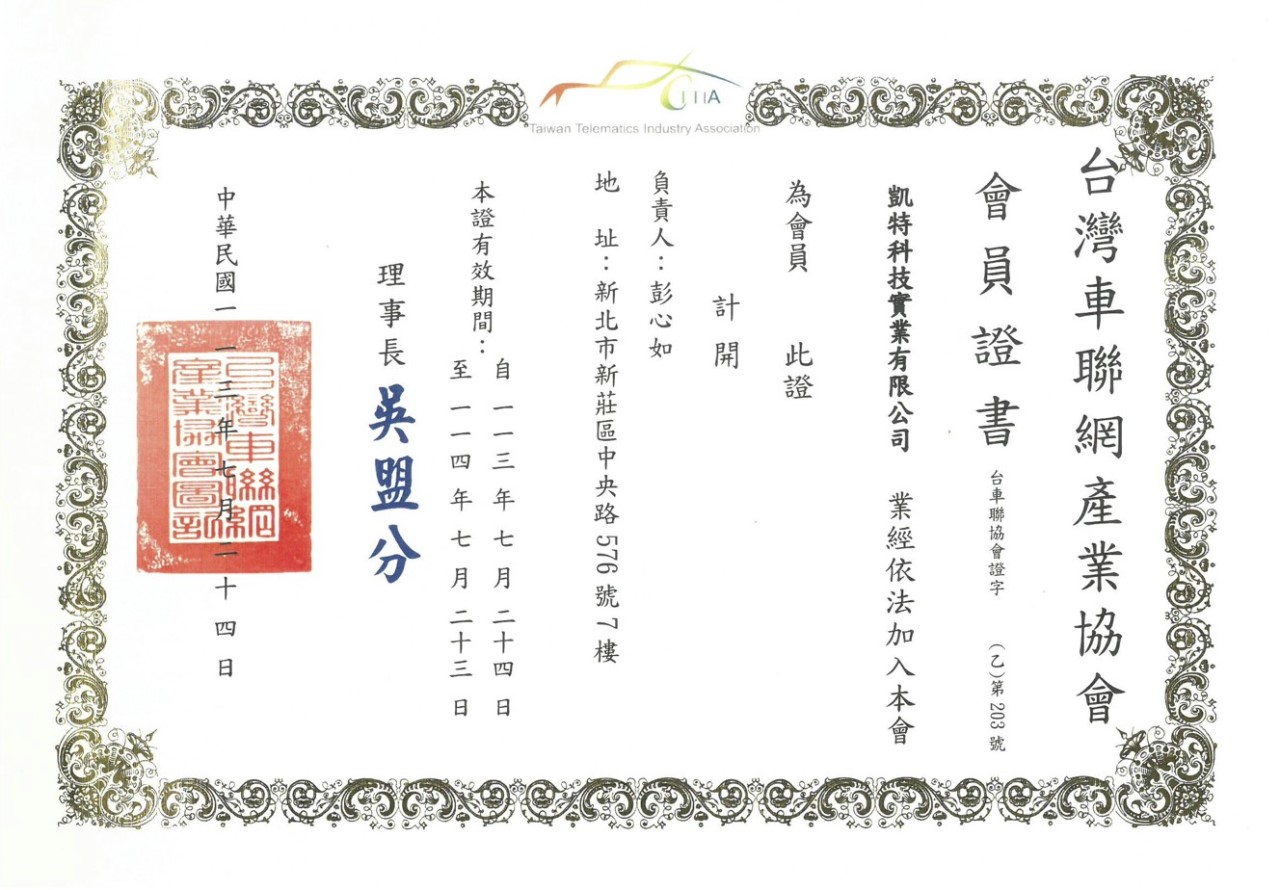 TTIA
Taiwan Telematics Industry Association
台灣車聯網產業協會
會員證書 台車聯協會證字 (乙)第203號
凱特科技實業有限公司 業經依法加入本會
為會員 此證
計開
負責人：彭心如
地 址：新北市新莊區中央路576號7樓
本證有效期間：
自一一三年七月二十四日
至一一四年七月二十三日
理事長 吳盟分
中華民國一一三年七月二十四日
台灣車聯網
產業協會圖記